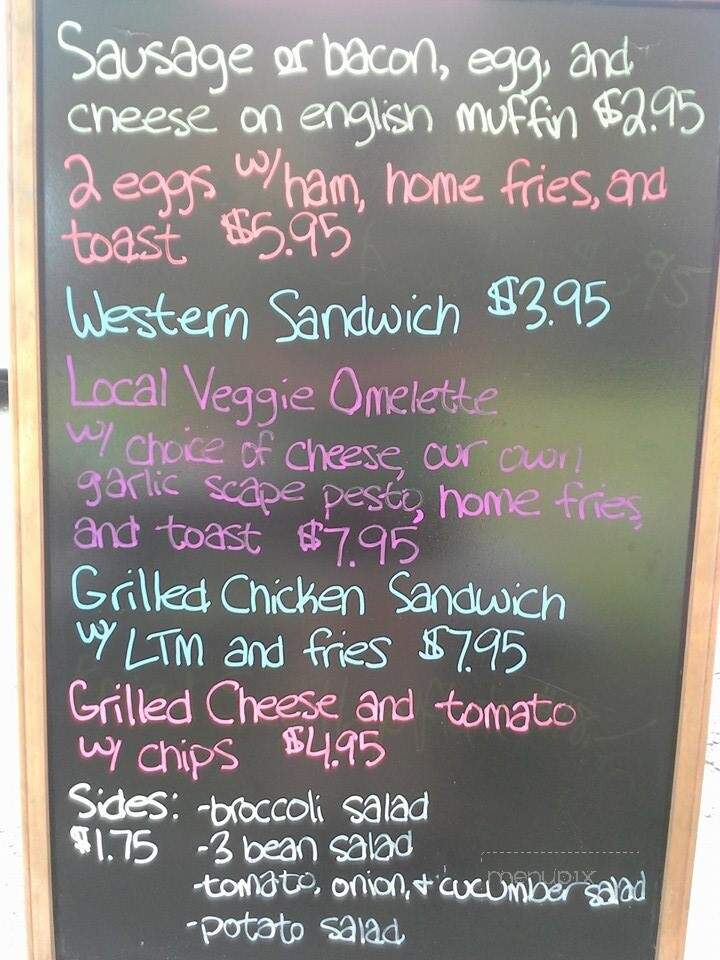 Sausage or bacon, egg, and
cheese on english muffin $2.95
2 eggs w/ ham, home fries, and
toast $5.95
Western Sandwich $3.95
Local Veggie Omelette
w/ choice of cheese, our own
garlic scape pesto, home fries,
and toast $7.95
Grilled Chicken Sandwich
w/ LTM and fries $7.95
Grilled Cheese and tomato
w/ chips $4.95
Sides: -broccoli salad
$1.75 -3 bean salad
-tomato, onion, + cucumber salad
-potato salad
menupix